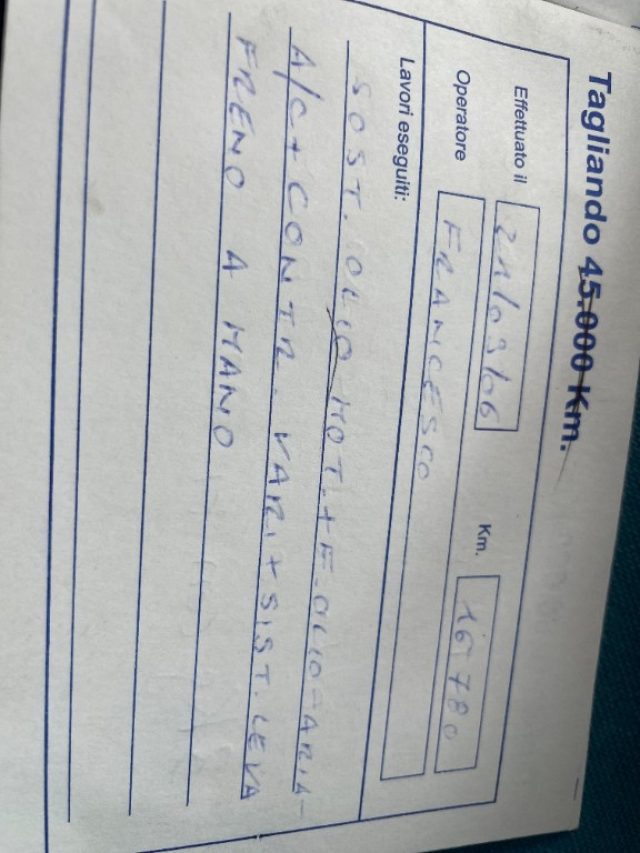 Tagliando 45.000 Km.
Effettuato il 21/03/06 Km. 16780
Operatore FRANCESCO
Lavori eseguiti:
SOST. OLIO MOT. + F. OLIO - ARIA -
A/C + CONTR. VARI + SIST. LEVA
FRENO A MANO